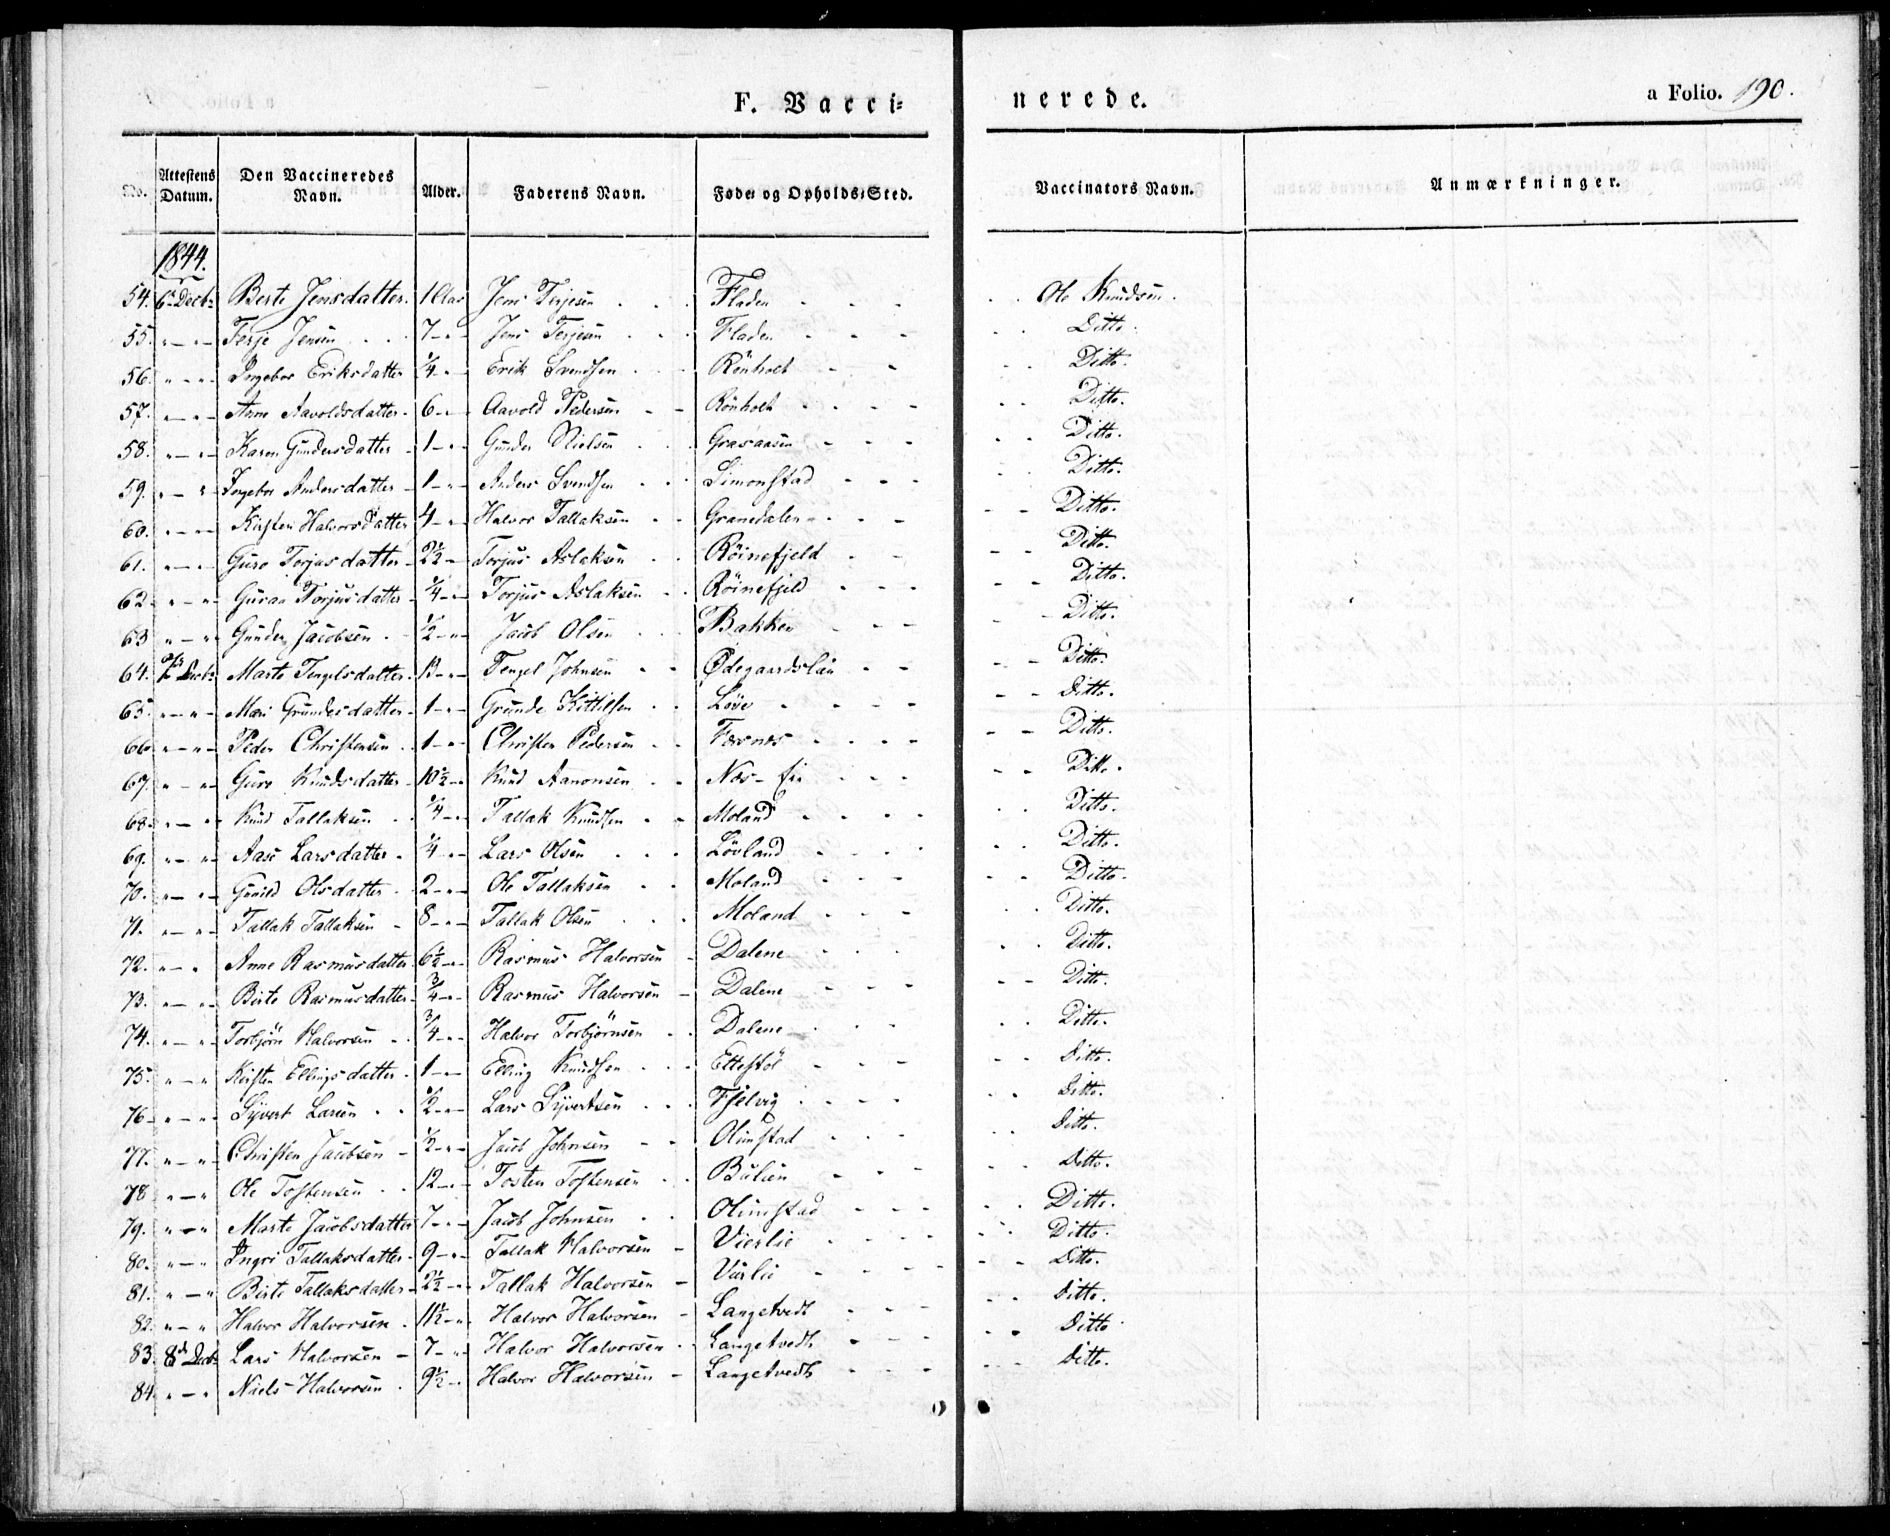 F. Vacci=
nerede.
a Folio. 190.
No. Attestens Datum. Den Vaccineredes Navn. Alder. Faderens Navn. Føde- og Opholds-Sted. Vaccinators Navn. Anmærkninger.
1844.
54. 6te Decbr Berte Jensdatter. 1 Aar Jens Terjesen Fladen Ole Knudsen.
55. " — " — Terje Jensen 7 — " — Jens Terjesen Fladen Ditto.
56. " — " — Ingebor Eriksdatter 1/4 " — Erik Svendsen Rönholt Ditto.
57. " — " — Anne Aavoldsdatter 6 — " — Aavold Pedersen Rönholt Ditto.
58. " — " — Karen Gundersdatter 1 — " — Gunder Nielsen Grasaasen Ditto.
59. " — " — Ingebor Andersdatter 1 — " — Anders Svendsen Simonstad Ditto.
60. " — " — Kirsten Halvorsdatter 4 — " — Halvor Tallaksen Granedalen Ditto.
61. " — " — Guro Torjusdatter 2 1/2 — Torjus Aslaksen Röinefjeld Ditto.
62. " — " — Guraa Torjusdatter 1/4 — " — Torjus Aslaksen Röinefjeld Ditto.
63. " — " — Gunder Jacobsen 1/2 — " — Jacob Olsen Bakken Ditto.
64. 7de Decbr Marte Tengelsdatter. 13 — " — Tengel Johnsen Ødegaardslien Ditto.
65. " — " — Mari Grundesdatter 1 — " — Grunde Kittilsen Löve Ditto.
66. " — " — Peder Christensen 1 — " — Christen Pedersen Ditto.
67. " — " — Guro Knudsdatter 10 1/2 — " Knud Aanonsen Næs- Ditto.
68. " — " — Knud Tallaksen 1/4 — " — Tallak Knudsen Moland Ditto.
69. " — " — Aase Larsdatter. 1/4 — " — Lars Olsen Lövland Ditto.
70. " — " — Gunild Olsdatter 2 — " — Ole Tallaksen Moland Ditto.
71. " — " — Tallak Tallaksen 8 — " — Tallak Olsen Moland Ditto.
72. " — " Anne Rasmusdatter 6 1/2 — " — Rasmus Halvorsen Dalene Ditto.
73. " — " — Birte Rasmusdatter 3/4 — " — Rasmus Halvorsen Dalene Ditto.
74. " — " — Torbjörn Halvorsen 3/4 — " — Halvor Torbjörnsen Dalene Ditto.
75. " — " Kirsten Ellingsdatter 1 — " — Elling Knudsen Ettestöl Ditto.
76. " — " — Syvert Larsen 1/2 — " — Lars Syvertsen Fjelvig Ditto.
77. " — " — Christen Jacobsen 1/2 — " — Jacob Johnsen Olimstad Ditto.
78 " — " Ole Tostensen 12 — " — Tosten Tostensen Bulien Ditto.
79. " — " Marte Jacobsdatter 7 — " — Jacob Johnsen Olimstad Ditto.
80. " — " Ingri Tallaksdatter 9 — " — Tallak Halvorsen Vierlie Ditto.
81. " — " Birte Tallaksdatter 2 1/2 — " — Tallak Halvorsen Vierlie Ditto.
82. " — " Halvor Halvorsen 11 1/2 — " Halvor Halvorsen Langetvedt Ditto.
83. 8de Decbr Lars Halvorsen 7 — " Halvor Halvorsen Langetvedt Ditto
84. " — " Niels Halvorsen 9 1/2 — " Halvor Halvorsen Langetvedt Ditto.